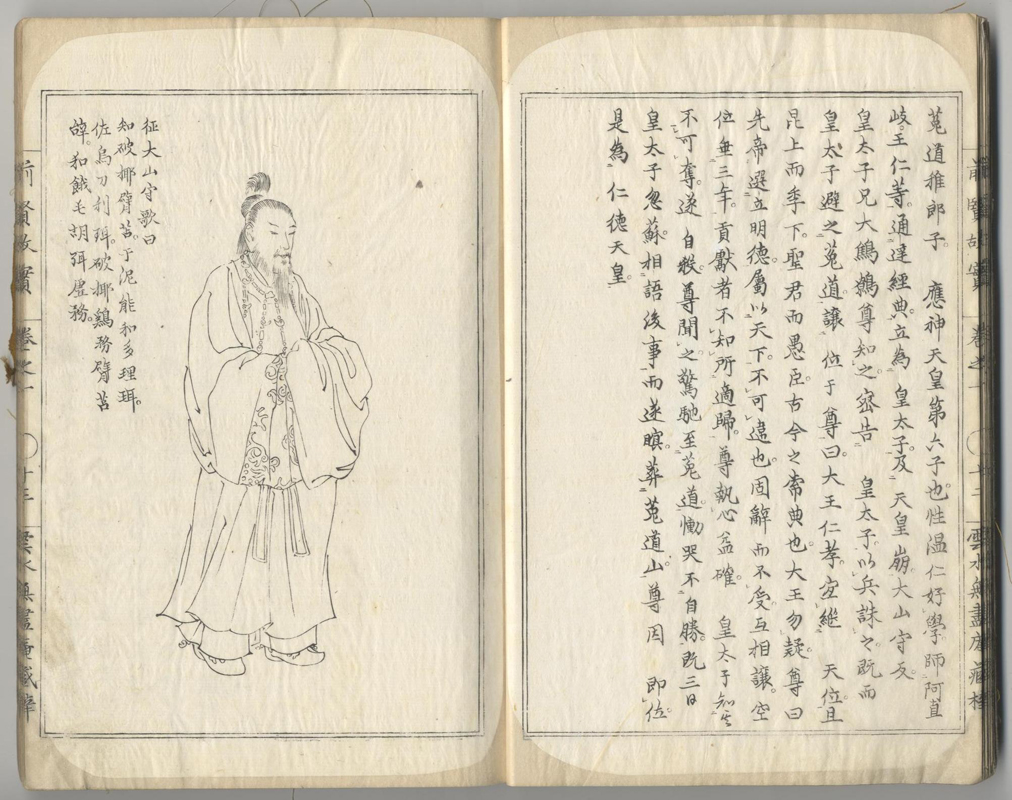 菟道稚郎子 應神天皇第六子也性温仁好學師阿直
岐王仁等通達經典立為 皇太子及 天皇崩大山守反
皇太子兄大鷦鷯尊知之密告 皇太子以兵誅之既而
皇太子避之菟道讓 位于尊曰大王仁孝宜繼 天位且
昆上而季下聖君而愚臣古今之常典也大王勿疑尊曰
先帝選立明德屬以天下不可違也固辭而不受互相讓空
位無三年貢獻者不知所適歸尊執心益確 皇太子知其
不可奪遂自殺尊聞之驚馳至菟道慟哭不自勝既三日
皇太子忽蘇相語後事而遂瞑葬菟道山尊因 即位
是為 仁德天皇
征大山守歌曰
知破椰臂苔于泥能和多理珥
佐烏刀利珥破椰鷄務臂苔
辞和餓毛胡珥虚務
前賢故實 卷之一 〇十三 雲水無盡庵藏梓